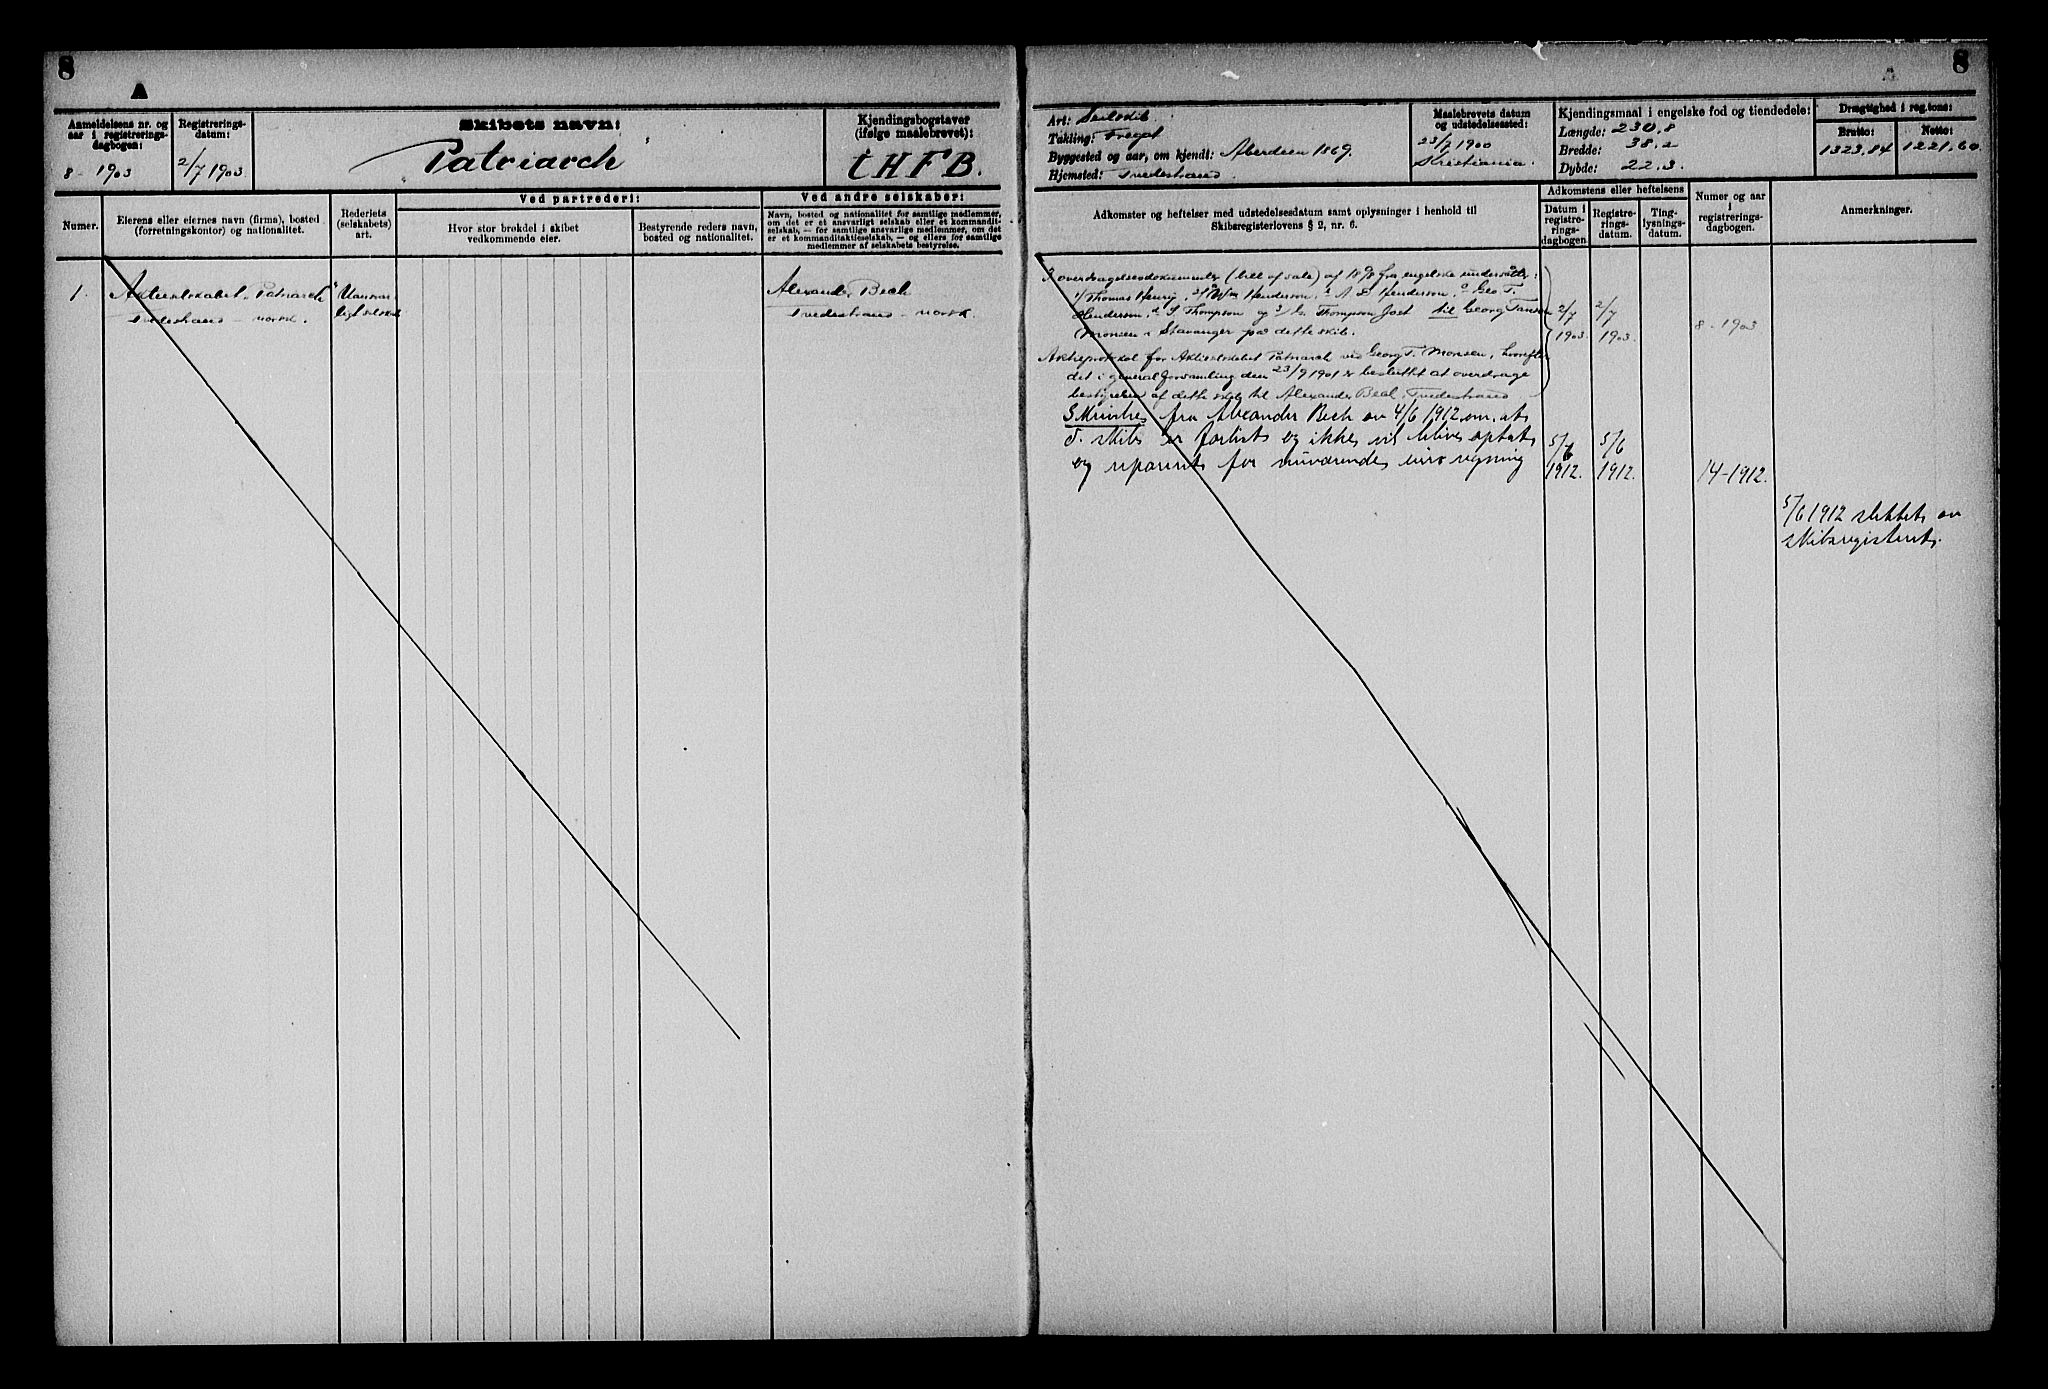 8
A
Anmeldelsens nr. og aar i registrerings-dagbogen:
8 - 1903
Registrerings-datum:
2/7 1903
Skibets navn:
Patriarch
Kjendingsbogstaver (ifølge maalebrevet):
HFB.
Numer.
Eierens eller eiernes navn (firma), bosted (forretningskontor) og nationalitet.
Rederiets (selskabets) art.
Ved partrederi:
Hvor stor brøkdel i skibet vedkommende eier.
Bestyrende reders navn, bosted og nationalitet.
Ved andre selskaber:
Navn, bosted og nationalitet for samtlige medlemmer, om det er et ansvarligt selskab eller et kommandit-selskab, — for samtlige ansvarlige medlemmer, om det er et kommanditaktieselskab, — og ellers for samtlige medlemmer af selskabets bestyrelse.
1.
Aktieselskabet "Patriarch"
Tvedestrand - norsk.
Uansvar-
ligt selskab
Alexander Bech
Tvedestrand - norsk.
A
8
Art: Seilskib.
Takling: Fregat
Byggested og aar, om kjendt: Aberdeen 1869.
Hjemsted: Tvedestrand.
Maalebrevets datum og udstedelsessted:
23/7 1900
Kristiania.
Kjendingsmaal i engelske fod og tiendedele:
Længde: 230,8
Bredde: 38.2
Dybde: 22.3.
Drægtighed i reg.tons:
Brutto:
1323,84
Netto:
1221,60
Adkomster og heftelser med udstedelsesdatum samt oplysninger i henhold til Skibsregisterlovens § 2, nr. 6.
Adkomstens eller heftelsens
Datum i registre-rings-dagbogen
Registre-rings-datum.
Ting-lysnings-datum.
Numer og aar i registrerings-dagbogen.
Anmerkninger.
overdragelsesdokumenter (bill of sale) af 1898 fra engelske undersåtter:
Thomas Henry, Wm Henderson, A D Henderson, Geo T.
Henderson, S Thompson og C. Thompson Joet til Georg Tanson
Monsen i Stavanger på dette skib.
2/7 1903.
2/7 1903.
8 - 1903
Aktieprotokol for Aktieselskabet Patriarch ved Georg T. Monsen, hvorefter
det i generalforsamling den 23/9 1901 er besluttet at overdrage
bestyrelsen af dette skib til Alexander Bech, Tvedestrand
Skrivelse fra Alexander Bech av 4/6 1912 om, at
d. skib er forlist og ikke vil blive optat
og reparert for nuværende eiers regning
5/6 1912.
5/6 1912.
14-1912.
5/6 1912 slettet av
skibsregisteret.